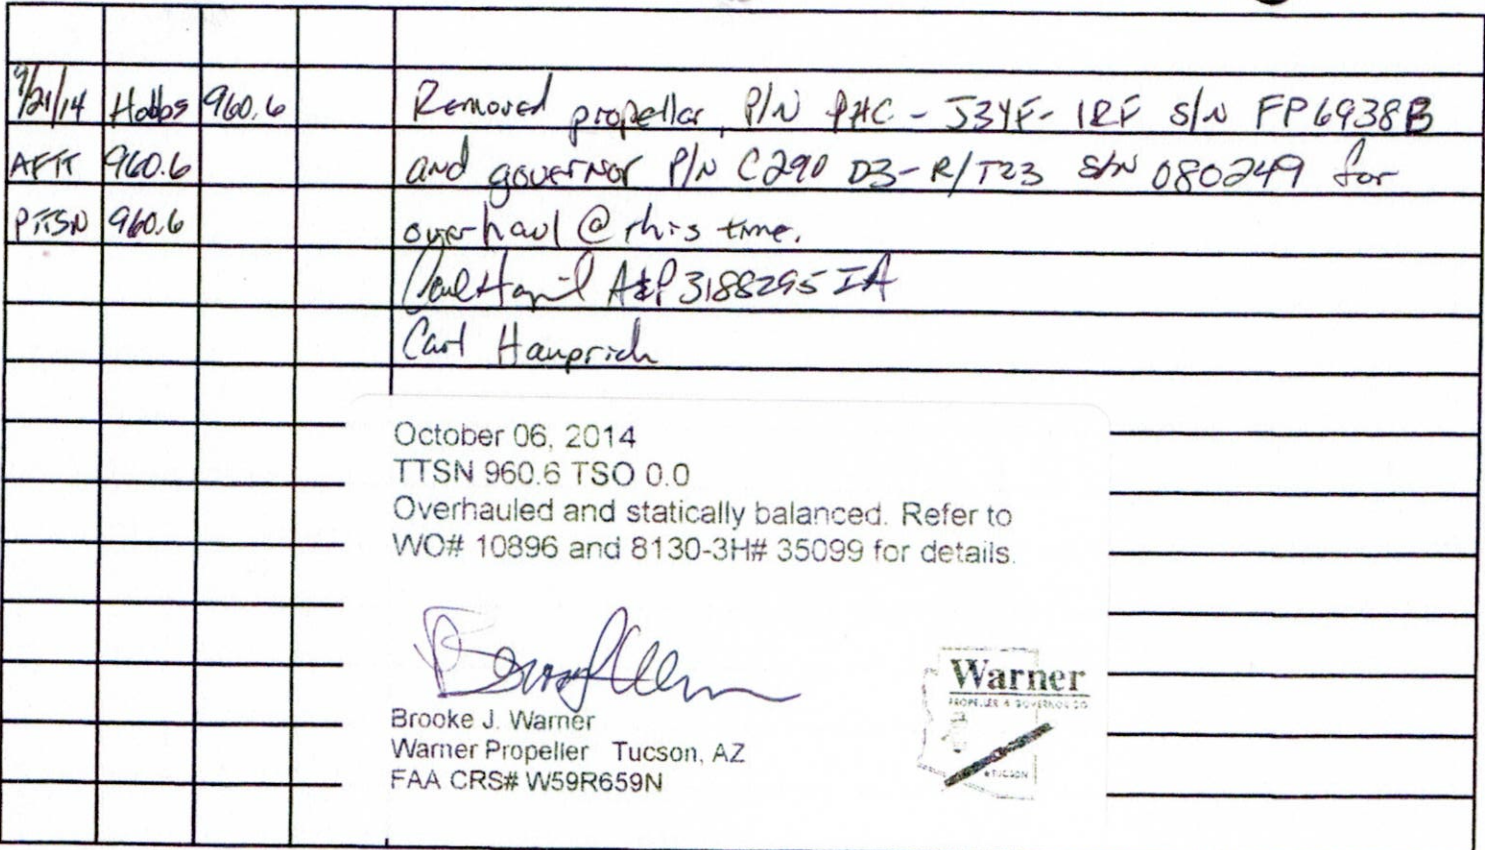 9/21/14 Hobbs 960.6 Removed propeller, P/N PHC-J3YF-1RF S/N FP6938B
AFTT 960.6 and governor P/N C290 D3-R/T23 S/N 080249 for
PTTSN 960.6 overhaul @ this time.
A&P 3188295 IA
Carl Hauprich
October 06, 2014
TTSN 960.6 TSO 0.0
Overhauled and statically balanced. Refer to
WO# 10896 and 8130-3H# 35099 for details.
Brooke J. Warner
Warner Propeller Tucson, AZ
FAA CRS# W59R659N
Warner
PROPELLER & GOVERNOR CO.
TUCSON